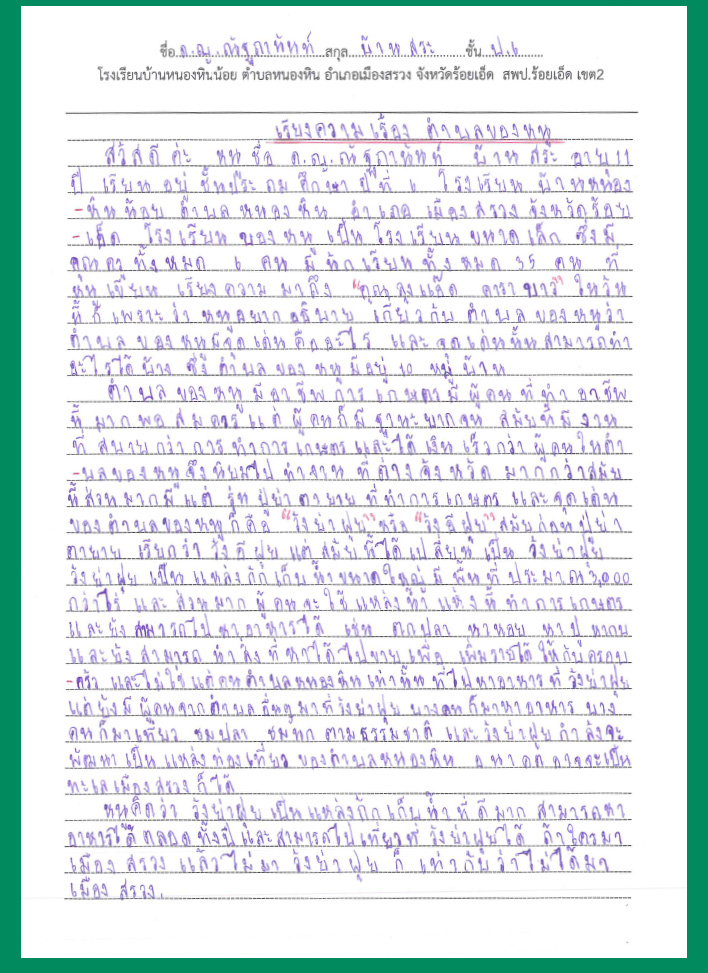 ชื่อ ด.ญ. ณัฐฐานันท์ สกุล บ้านสระ ชั้น ป.6
โรงเรียนบ้านหนองหินน้อย ตำบลหนองหิน อำเภอเมืองสรวง จังหวัดร้อยเอ็ด สพป.ร้อยเอ็ด เขต2
เรียงความเรื่อง ตำบลของหนู
สวัสดี ค่ะ หนู ชื่อ ด.ญ. ณัฐฐานันท์ บ้าน สระ อายุ 11
ปี เรียน อยู่ ชั้นประถมศึกษา ปีที่ 6 โรงเรียน บ้านหนอง
-หินน้อย ตำบลหนองหิน อำเภอ เมืองสรวง จังหวัดร้อย
-เอ็ด โรงเรียน ของหนู เป็น โรงเรียนขนาดเล็ก ซึ่งมี
คุณครูทั้งหมด 6 คน มีนักเรียนทั้งหมด 35 คน ที่
หนูเขียน เรียงความ มาถึง "คุณลุงแอ๊ด คาราบาว" ในวัน
นี้ก็ เพราะว่า หนูอยากอธิบาย เกี่ยวกับ ตำบลของหนูว่า
ตำบล ของหนูมีจุดเด่นคืออะไร และ จุดเด่นนั้นสามารถทำ
อะไรได้บ้าง ซึ่ง ตำบลของหนูมีอยู่ 10 หมู่บ้าน
ตำบล ของหนูมีอาชีพการเกษตรมีผู้คนที่ทำอาชีพ
นี้ มากพอ สมควรแต่ ผู้คนก็มี ฐานะยากจน สมัยนี้มีงาน
ที่ สบายกว่าการทำการเกษตรและได้เงินเร็วกว่าผู้คนในตำ
-บลของหนูจึงนิยมไปทำงาน ที่ต่างจังหวัด มากกว่าสมัย
นี้ส่วนมากมีแต่ รุ่นปู่ย่าตายาย ที่ทำการเกษตร และจุดเด่น
ของตำบลของหนูก็คือ "วังย่าฝุย" หรือ "วังอีฝุย" สมัยก่อนปู่ย่า
ตายาย เรียกว่า วังอีฝุย แต่สมัยนี้ได้เปลี่ยนเป็น วังย่าฝุย
วังย่าฝุย เป็นแหล่งกักเก็บน้ำขนาดใหญ่ มี พื้นที่ประมาณ 3,000
กว่าไร่ และส่วนมาก ผู้คนจะใช้แหล่งน้ำ แห่งนี้ทำการเกษตร
และยังสามารถไปหาอาหารได้ เช่น ตกปลา หาหอย หาปู หากบ
และยังสามารถ นำสิ่งที่หาได้ไปขายเพื่อ เพิ่มรายได้ให้กับครอบ
-ครัว และไม่ใช่แต่คนตำบลหนองหินเท่านั้นที่ไปหาอาหารที่วังย่าฝุย
แต่ยังมีผู้คนจากตำบลอื่นๆมาที่วังย่าฝุย บางคนก็มาหาอาหาร บาง
คนก็มาเที่ยว ชมปลา ชมนก ตามธรรมชาติ และวังย่าฝุยกำลังจะ
พัฒนาเป็นแหล่งท่องเที่ยว ของตำบลหนองหิน อนาคต อาจจะเป็น
ทะเลเมืองสรวงก็ได้
หนูคิดว่า วังย่าฝุยเป็นแหล่งกักเก็บน้ำที่ดีมาก สามารถหา
อาหารได้ ตลอดทั้งปีและสามารถไปเที่ยวที่วังย่าฝุยได้ ถ้าใครมา
เมือง สรวง แล้วไม่มา วังย่าฝุย ก็ เท่ากับว่าไม่ได้มา
เมือง สรวง.